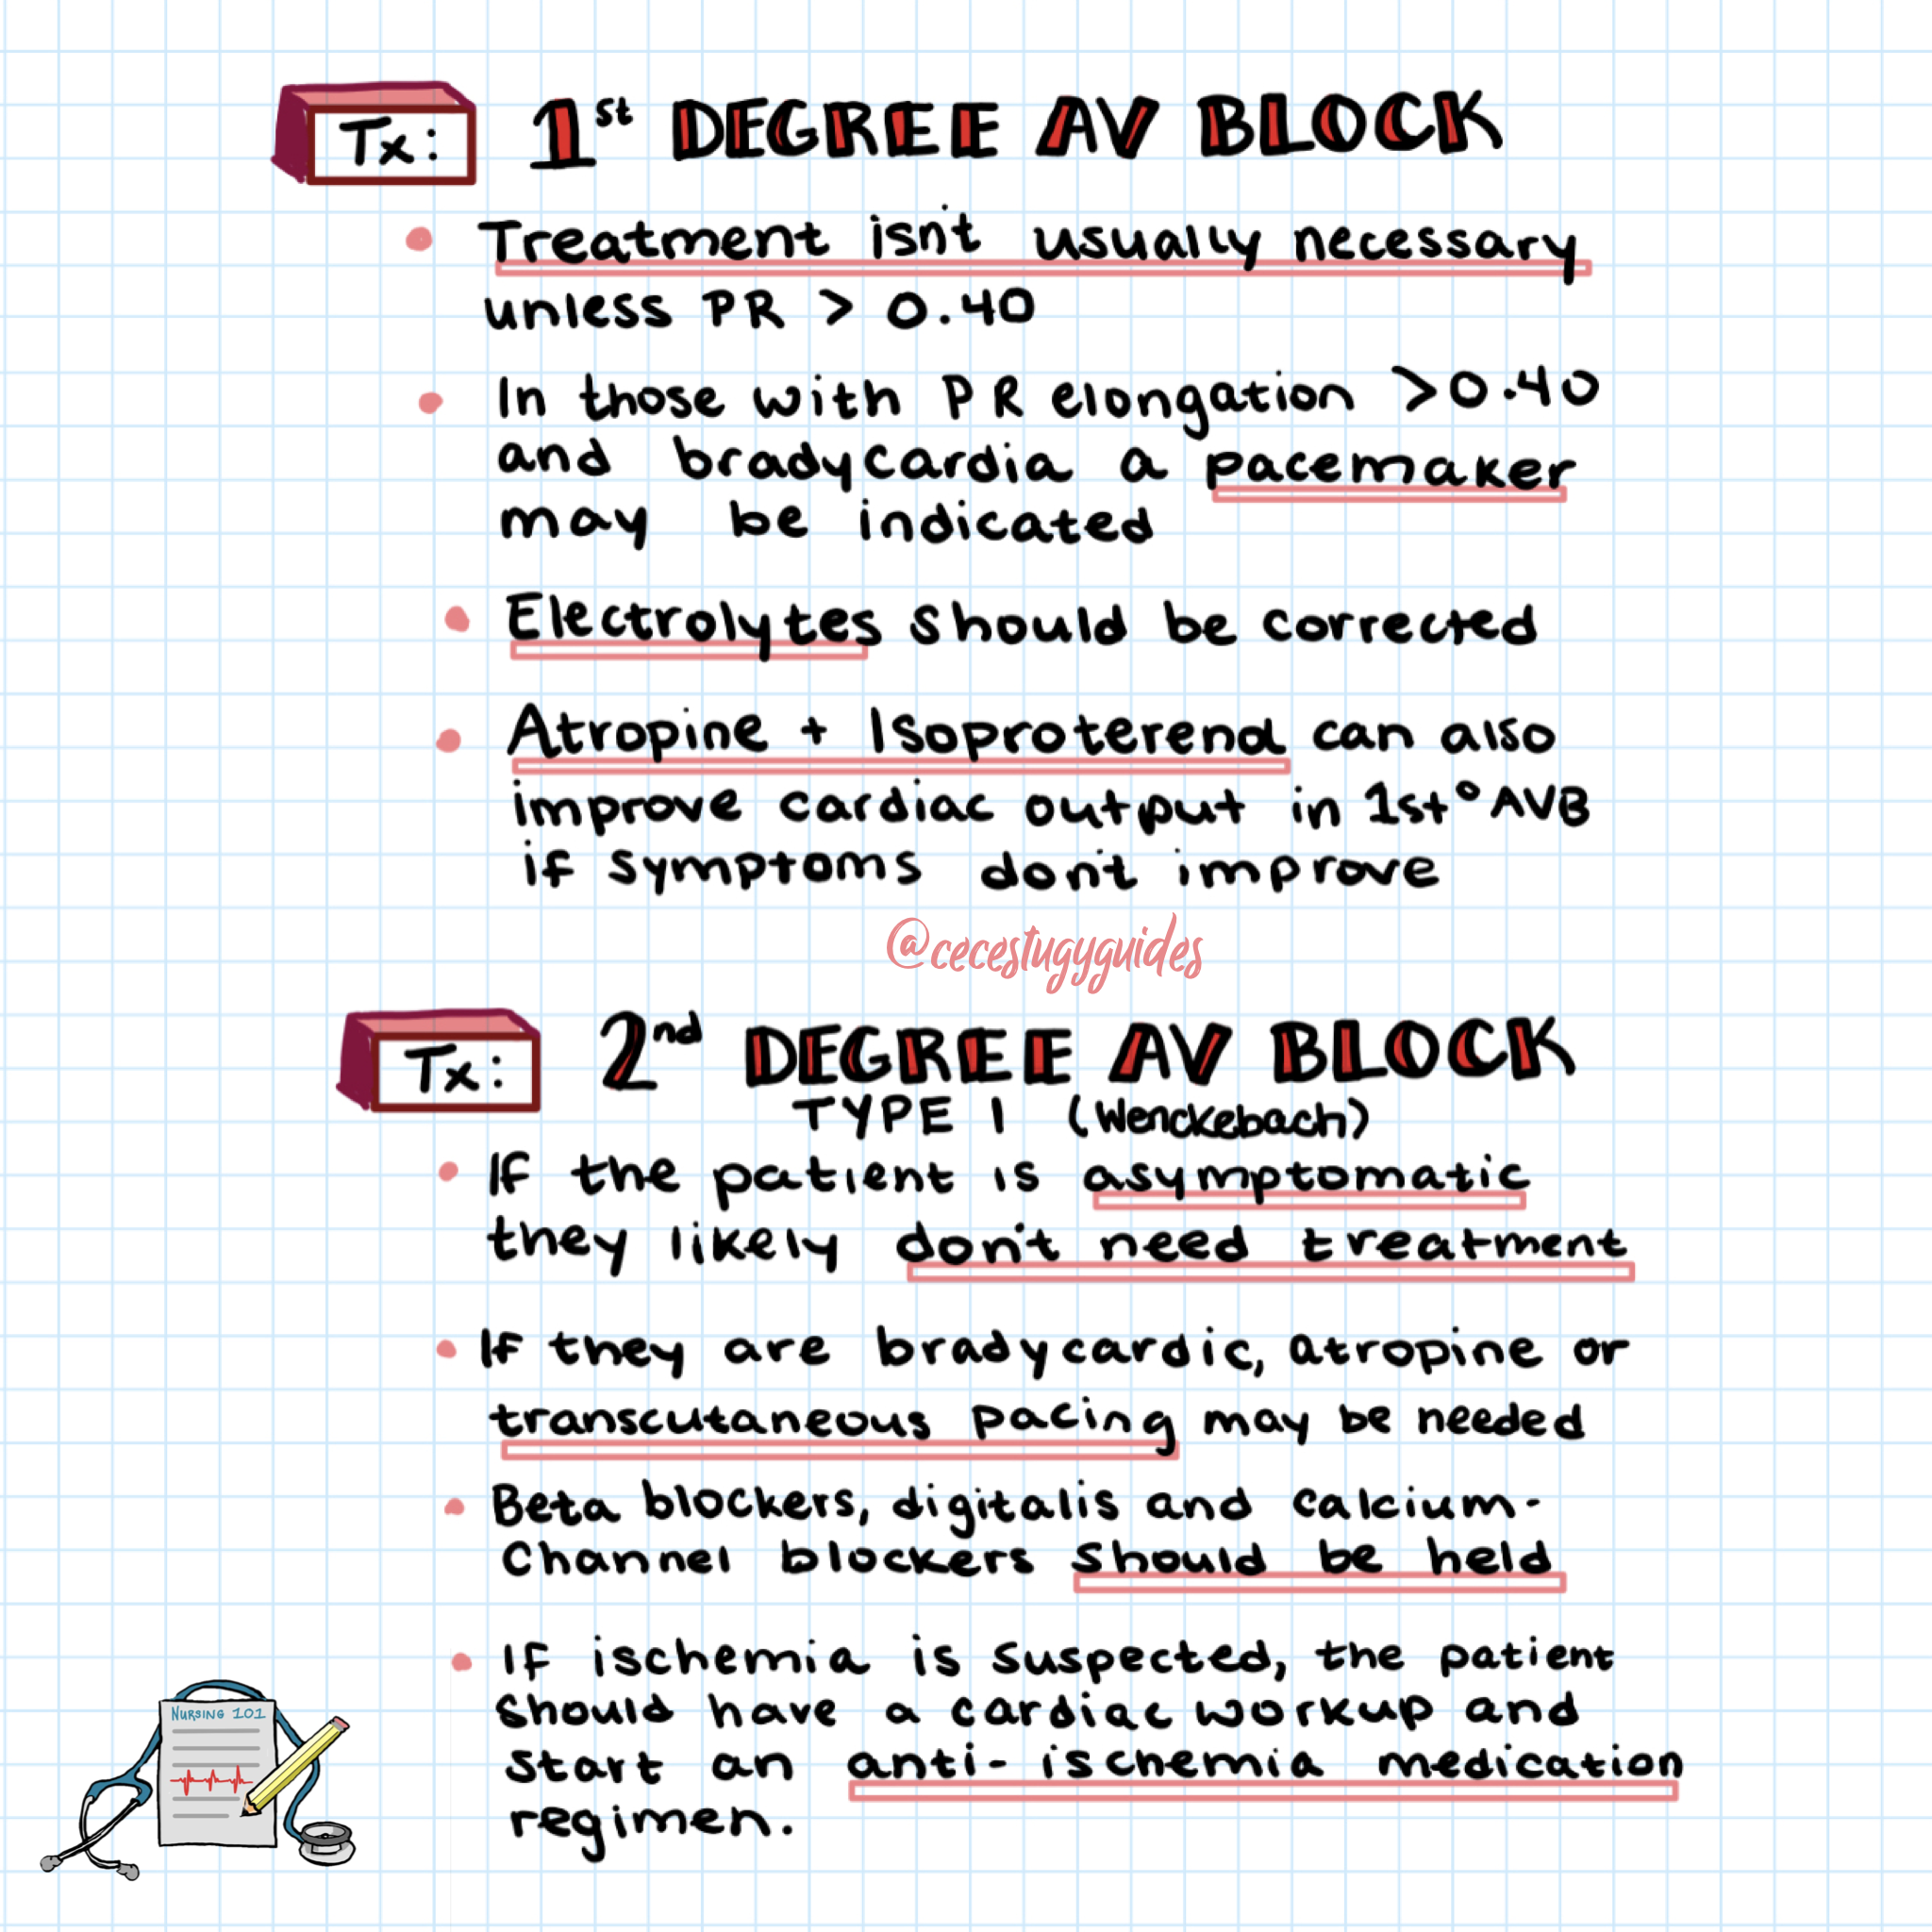 Tx: 1st DEGREE AV BLOCK
• Treatment isn't usually necessary
unless PR > 0.40
• In those with PR elongation >0.40
and bradycardia a pacemaker
may be indicated
• Electrolytes should be corrected
• Atropine + Isoproterenol can also
improve cardiac output in 1st° AVB
if symptoms don't improve
@cecestugyguides
Tx: 2nd DEGREE AV BLOCK
TYPE 1 (Wenckebach)
• If the patient is asymptomatic
they likely don't need treatment
• If they are bradycardic, atropine or
transcutaneous pacing may be needed
• Beta blockers, digitalis and calcium-
channel blockers should be held
• If ischemia is suspected, the patient
should have a cardiac workup and
start an anti-ischemia medication
regimen.
NURSING 101